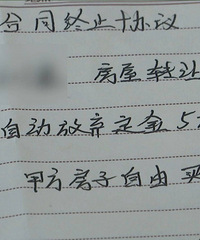 合同终止协议
房屋转让
自动放弃定金5
甲方房子自由买